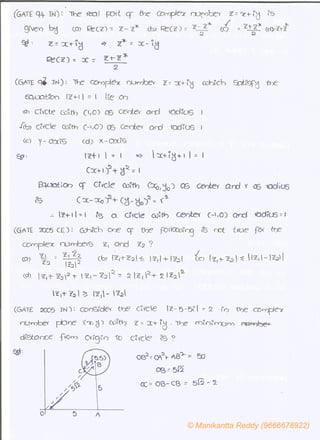 (GATE 94 IN): The real part of the complex number z=x+iy is
given by (a) Re(z) = z-z* (b) Re(z) = z-z*/2 (c) z+z*/2 (d) z+z*
Sol: z = x+iy ⇒ z* = x-iy
Re(z) = x = z+z*/2
(GATE 97 IN): The complex number z=x+iy which satisfy the
equation |z+1| = 1 lie on
(a) Circle with (1,0) as center and radius 1
(b) circle with (-1,0) as center and radius 1
(c) y-axis (d) x-axis
Sol: |z+1| = 1 ⇒ |x+iy+1| = 1
(x+1)²+y² = 1
Equation of circle with (x₀,y₀) as center and r as radius
is (x-x₀)²+(y-y₀)² = r²
∴ |z+1|=1 is a circle with center (-1,0) and radius=1
(GATE 2005 CE): Which one of the following is not true for the
complex numbers z₁ and z₂ ?
(a) z₁/z₂ = z₁z̄₂/|z₂|² (b) |z₁+z₂| ≤ |z₁|+|z₂| (c) |z₁+z₂| ≤ |z₁|-|z₂|
(d) |z₁+z₂|²+|z₁-z₂|² = 2|z₁|²+2|z₂|²
|z₁+z₂| ≥ |z₁|-|z₂|
(GATE 2005 IN): consider the circle |z-5-5i| = 2 in the complex
number plane (x,y) with z=x+iy. The minimum
distance from origin to circle is ?
Sol:
(5,5)
B
C
5√2
5
O 5 A
OB² = OA²+AB² = 50
OB = 5√2
OC = OB-CB = 5√2-2
© Manikantta Reddy (9666678922)